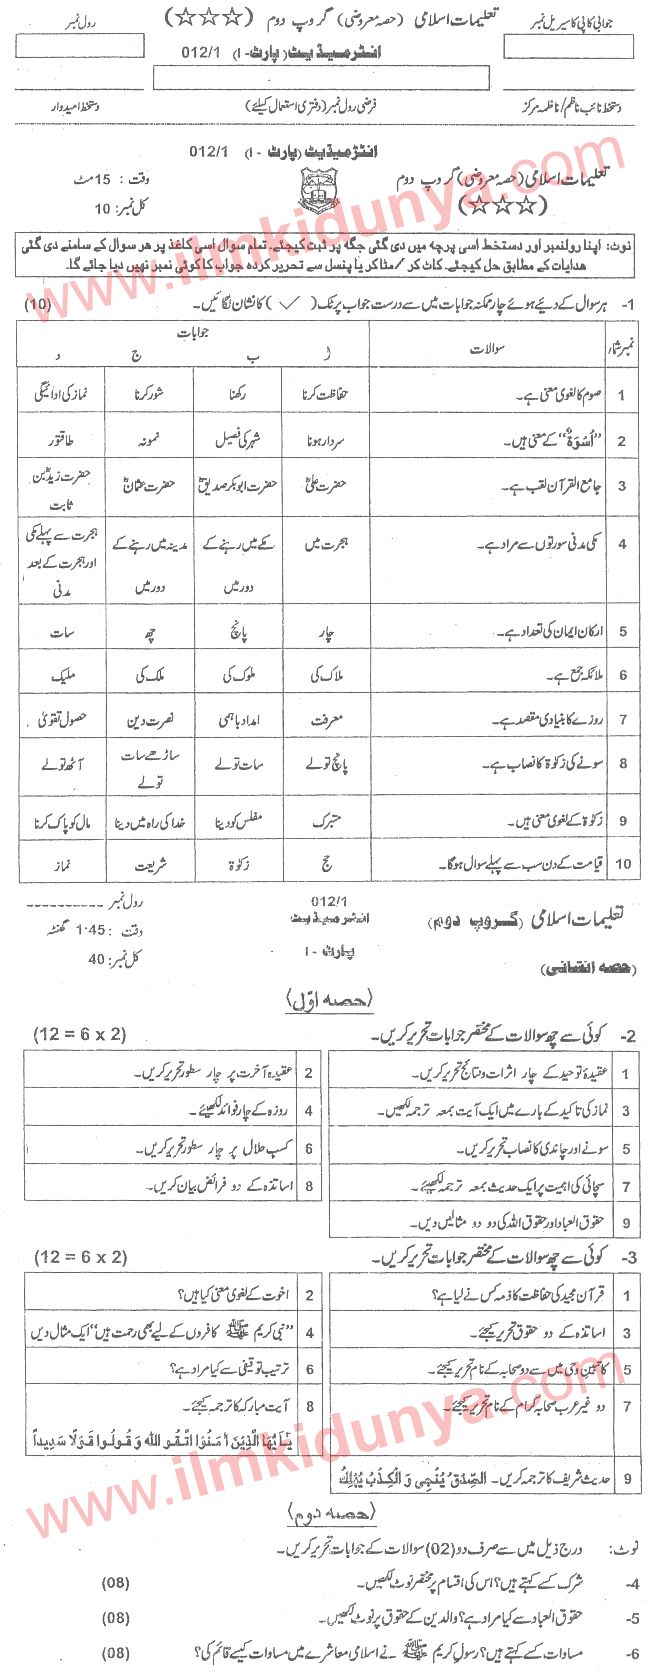 جوابی کاپی کا سیریل نمبر
تعلیمات اسلامی (حصہ معروضی) گروپ دوم (☆☆☆)
رول نمبر
انٹرمیڈیٹ (پارٹ - I) 012/1
دستخط نائب ناظم/ناظمہ مرکز
فرضی رول نمبر (دفتری استعمال کیلئے)
دستخط امیدوار
انٹرمیڈیٹ (پارٹ - I) 012/1
تعلیمات اسلامی (حصہ معروضی) گروپ دوم
(☆☆☆)
وقت : 15 منٹ
کل نمبر: 10
نوٹ: اپنا رولنمبر اور دستخط اسی پرچہ میں دی گئی جگہ پر ثبت کیجئے۔ تمام سوال اسی کاغذ پر ھر سوال کے سامنے دی گئی
ھدایات کے مطابق حل کیجئے۔ کاٹ کر / مٹا کر یا پنسل سے تحریر کردہ جواب کا کوئی نمبر نہیں دیا جائے گا۔
1- ہر سوال کے دیئے ہوئے چار ممکنہ جوابات میں سے درست جواب پر ٹک (✓) کا نشان لگائیں۔ (10)
نمبر شمار سوالات جوابات
ا ب ج د
1 صوم کا لغوی معنی ہے۔ حفاظت کرنا رکھنا شور کرنا نماز کی ادائیگی
2 "اُسْوَةٌ" کے معنی ہیں۔ سردار ہونا شہر کی فصیل نمونہ طاقتور
3 جامع القرآن لقب ہے۔ حضرت علیؓ حضرت ابوبکر صدیقؓ حضرت عثمانؓ حضرت زیدؓ بن ثابت
4 مکی مدنی سورتوں سے مراد ہے۔ ہجرت میں مکے میں رہنے کے دور میں مدینہ میں رہنے کے دور میں ہجرت سے پہلے مکی اور ہجرت کے بعد مدنی
5 ارکان ایمان کی تعداد ہے۔ چار پانچ چھ سات
6 ملائکہ جمع ہے۔ ملاک کی ملوک کی ملک کی ملیک
7 روزے کا بنیادی مقصد ہے۔ معرفت امداد باہمی نصرت دین حصول تقویٰ
8 سونے کی زکوٰۃ کا نصاب ہے۔ پانچ تولے سات تولے ساڑھے سات تولے آٹھ تولے
9 زکوٰۃ کے لغوی معنی ہیں۔ متبرک مفلس کو دینا خدا کی راہ میں دینا مال کو پاک کرنا
10 قیامت کے دن سب سے پہلے سوال ہوگا۔ حج زکوٰۃ شریعت نماز
تعلیمات اسلامی (گروپ دوم)
(حصہ انشائی)
012/1
انٹرمیڈیٹ
پارٹ - I
رول نمبر ----------
وقت : 1:45 گھنٹہ
کل نمبر: 40
(حصہ اوّل)
2- کوئی سے چھ سوالات کے مختصر جوابات تحریر کریں۔ (12 = 6 x 2)
1 عقیدہ توحید کے چار اثرات و نتائج تحریر کریں۔
2 عقیدہ آخرت پر چار سطور تحریر کریں۔
3 نماز کی تاکید کے بارے میں ایک آیت بمعہ ترجمہ لکھیں۔
4 روزہ کے چار فوائد لکھیئے۔
5 سونے اور چاندی کا نصاب تحریر کریں۔
6 کسب حلال پر چار سطور تحریر کریں۔
7 سچائی کی اہمیت پر ایک حدیث بمعہ ترجمہ لکھیئے۔
8 اساتذہ کے دو فرائض بیان کریں۔
9 حقوق العباد اور حقوق اللہ کی دو دو مثالیں دیں۔
3- کوئی سے چھ سوالات کے مختصر جوابات تحریر کریں۔ (12 = 6 x 2)
1 قرآن مجید کی حفاظت کا ذمہ کس نے لیا ہے؟
2 اخوت کے لغوی معنی کیا ہیں؟
3 اساتذہ کے دو حقوق تحریر کیجئے۔
4 "نبی کریم ﷺ کافروں کے لیے بھی رحمت ہیں" ایک مثال دیں
5 کاتبین وحی میں سے دو صحابہ کے نام تحریر کیجئے۔
6 ترتیب توقیفی سے کیا مراد ہے؟
7 دو غیر عرب صحابہ کرام کے نام تحریر کیجئے۔
8 آیت مبارکہ کا ترجمہ کیجئے۔
يٰٓاَيُّهَا الَّذِيْنَ اٰمَنُوا اتَّقُوا الله وَ قُولُوا قَوْلًا سَدِيداً
9 حدیث شریف کا ترجمہ کریں۔ الصِّدْقُ يُنْجِى وَ الْكِذْبُ يُهْلِكُ
(حصہ دوم)
نوٹ: درج ذیل میں سے صرف دو (02) سوالات کے جوابات تحریر کریں۔
4- شرک کسے کہتے ہیں؟ اس کی اقسام پر مختصر نوٹ لکھیں۔ (08)
5- حقوق العباد سے کیا مراد ہے؟ والدین کے حقوق پر نوٹ لکھیں۔ (08)
6- مساوات کسے کہتے ہیں؟ رسول کریم ﷺ نے اسلامی معاشرے میں مساوات کیسے قائم کی؟ (08)
www.ilmkidunya.com
www.ilmkidunya.com